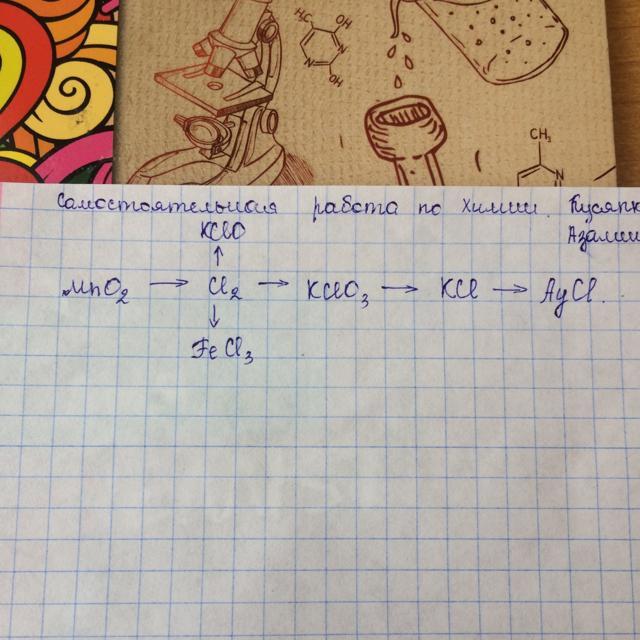 H₃C
OH
N
N
OH
CH₃
N
Самостоятельная работа по химии.
Азалии
KClO
↑
MnO₂ → Cl₂ → KClO₃ → KCl → AgCl.
↓
FeCl₃